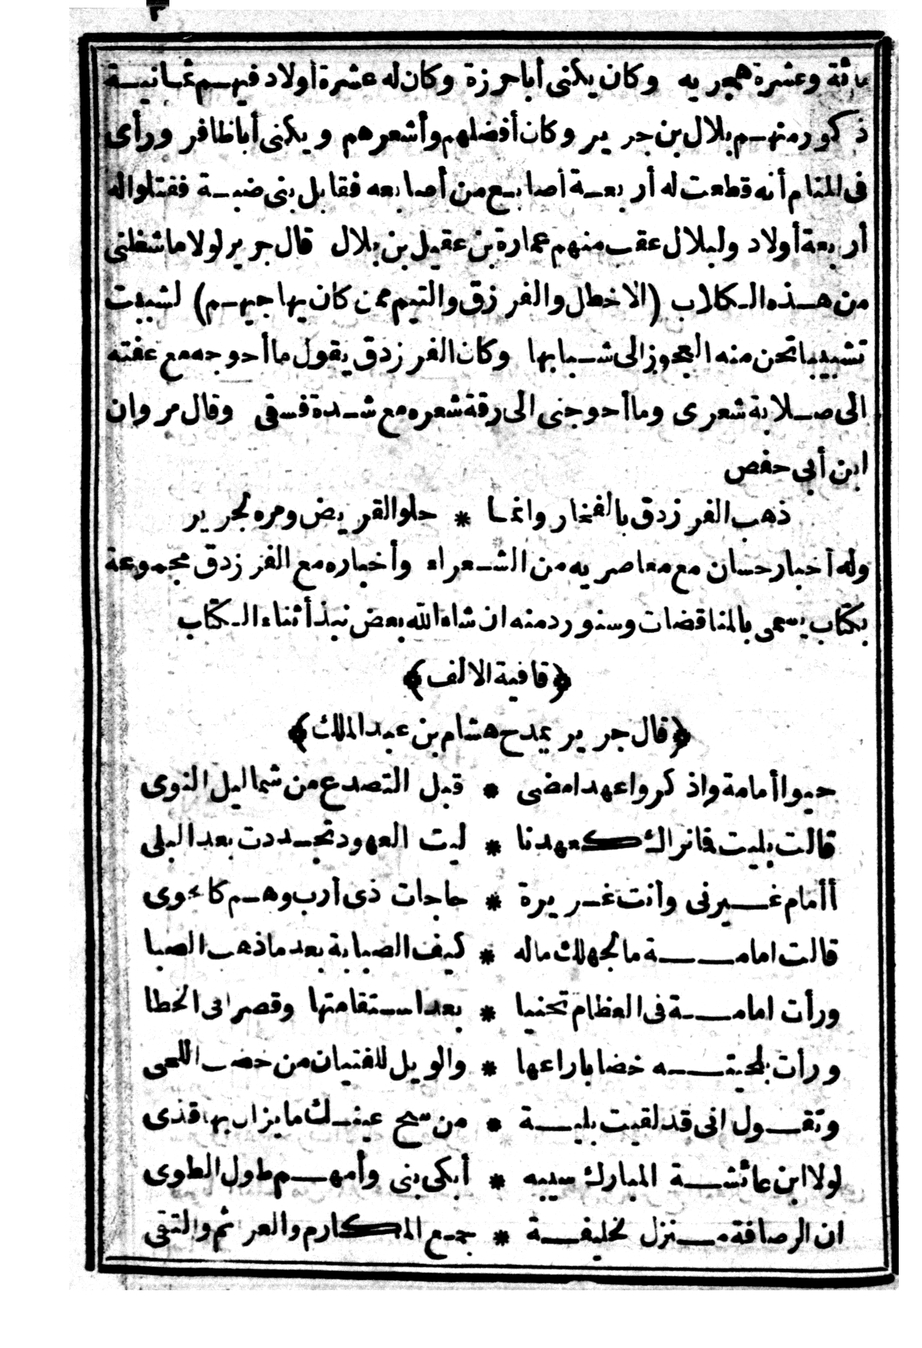 ٣
مائة وعشرة هجريه وكان يكنى أباحرزة وكان له عشرة أولاد فيهم ثمانية
ذكور منهم بلال بن جرير وكان أفضلهم وأشعرهم ويكنى أباظافر ورأى
فى المنام أنه قطعت له أربعة أصابع من أصابعه فقابل بنى ضبة فقتلوا له
أربعة أولاد ولبلال عقب منهم عمارة بن عقيل بن بلال قال جرير لولا ما شغلنى
من هذه الكلاب (الاخطل والفرزدق والتيم ممن كان يهاجيهم) لشببت
تشبيبا تحن منه العجوز الى شبابها وكان الفرزدق يقول ما أحوجه مع عفته
الى صلابة شعرى وما أحوجنى الى رقة شعره مع شدة فسقى وقال مروان
ابن أبى حفص
ذهب الفرزدق بالفخار وانما * حلو القريض ومره لجرير
وله أخبار حسان مع معاصريه من الشعراء وأخباره مع الفرزدق مجموعة
بكتاب يسمى بالمناقضات وسنورد منه ان شاء الله بعض نبذ أثناء الكتاب
﴿قافية الالف﴾
﴿قال جرير يمدح هشام بن عبد الملك﴾
حيوا أمامة واذكروا عهدا مضى * قبل التصدع من شماليل النوى
قالت بليت فما نراك كعهدنا * ليت العهود تجددت بعد البلى
أأمام غيرنى وأنت غريرة * حاجات ذى أرب وهم كالجوى
قالت امامة ما لجهلك ماله * كيف الصبابة بعد ما ذهب الصبا
ورأت امامة فى العظام تحنيا * بعد استقامتها وقصرا فى الخطا
ورأت بلحيته خضابا راعها * والويل للفتيان من خضب اللحى
وتقول انى قد لقيت بلية * من مسح عينك ما يزال بها قذى
لولا ابن عائشة المبارك سيبه * أبكى بنى وأمهم طول الطوى
ان الرصافة منزل لخليفة * جمع المكارم والعزائم والتقى